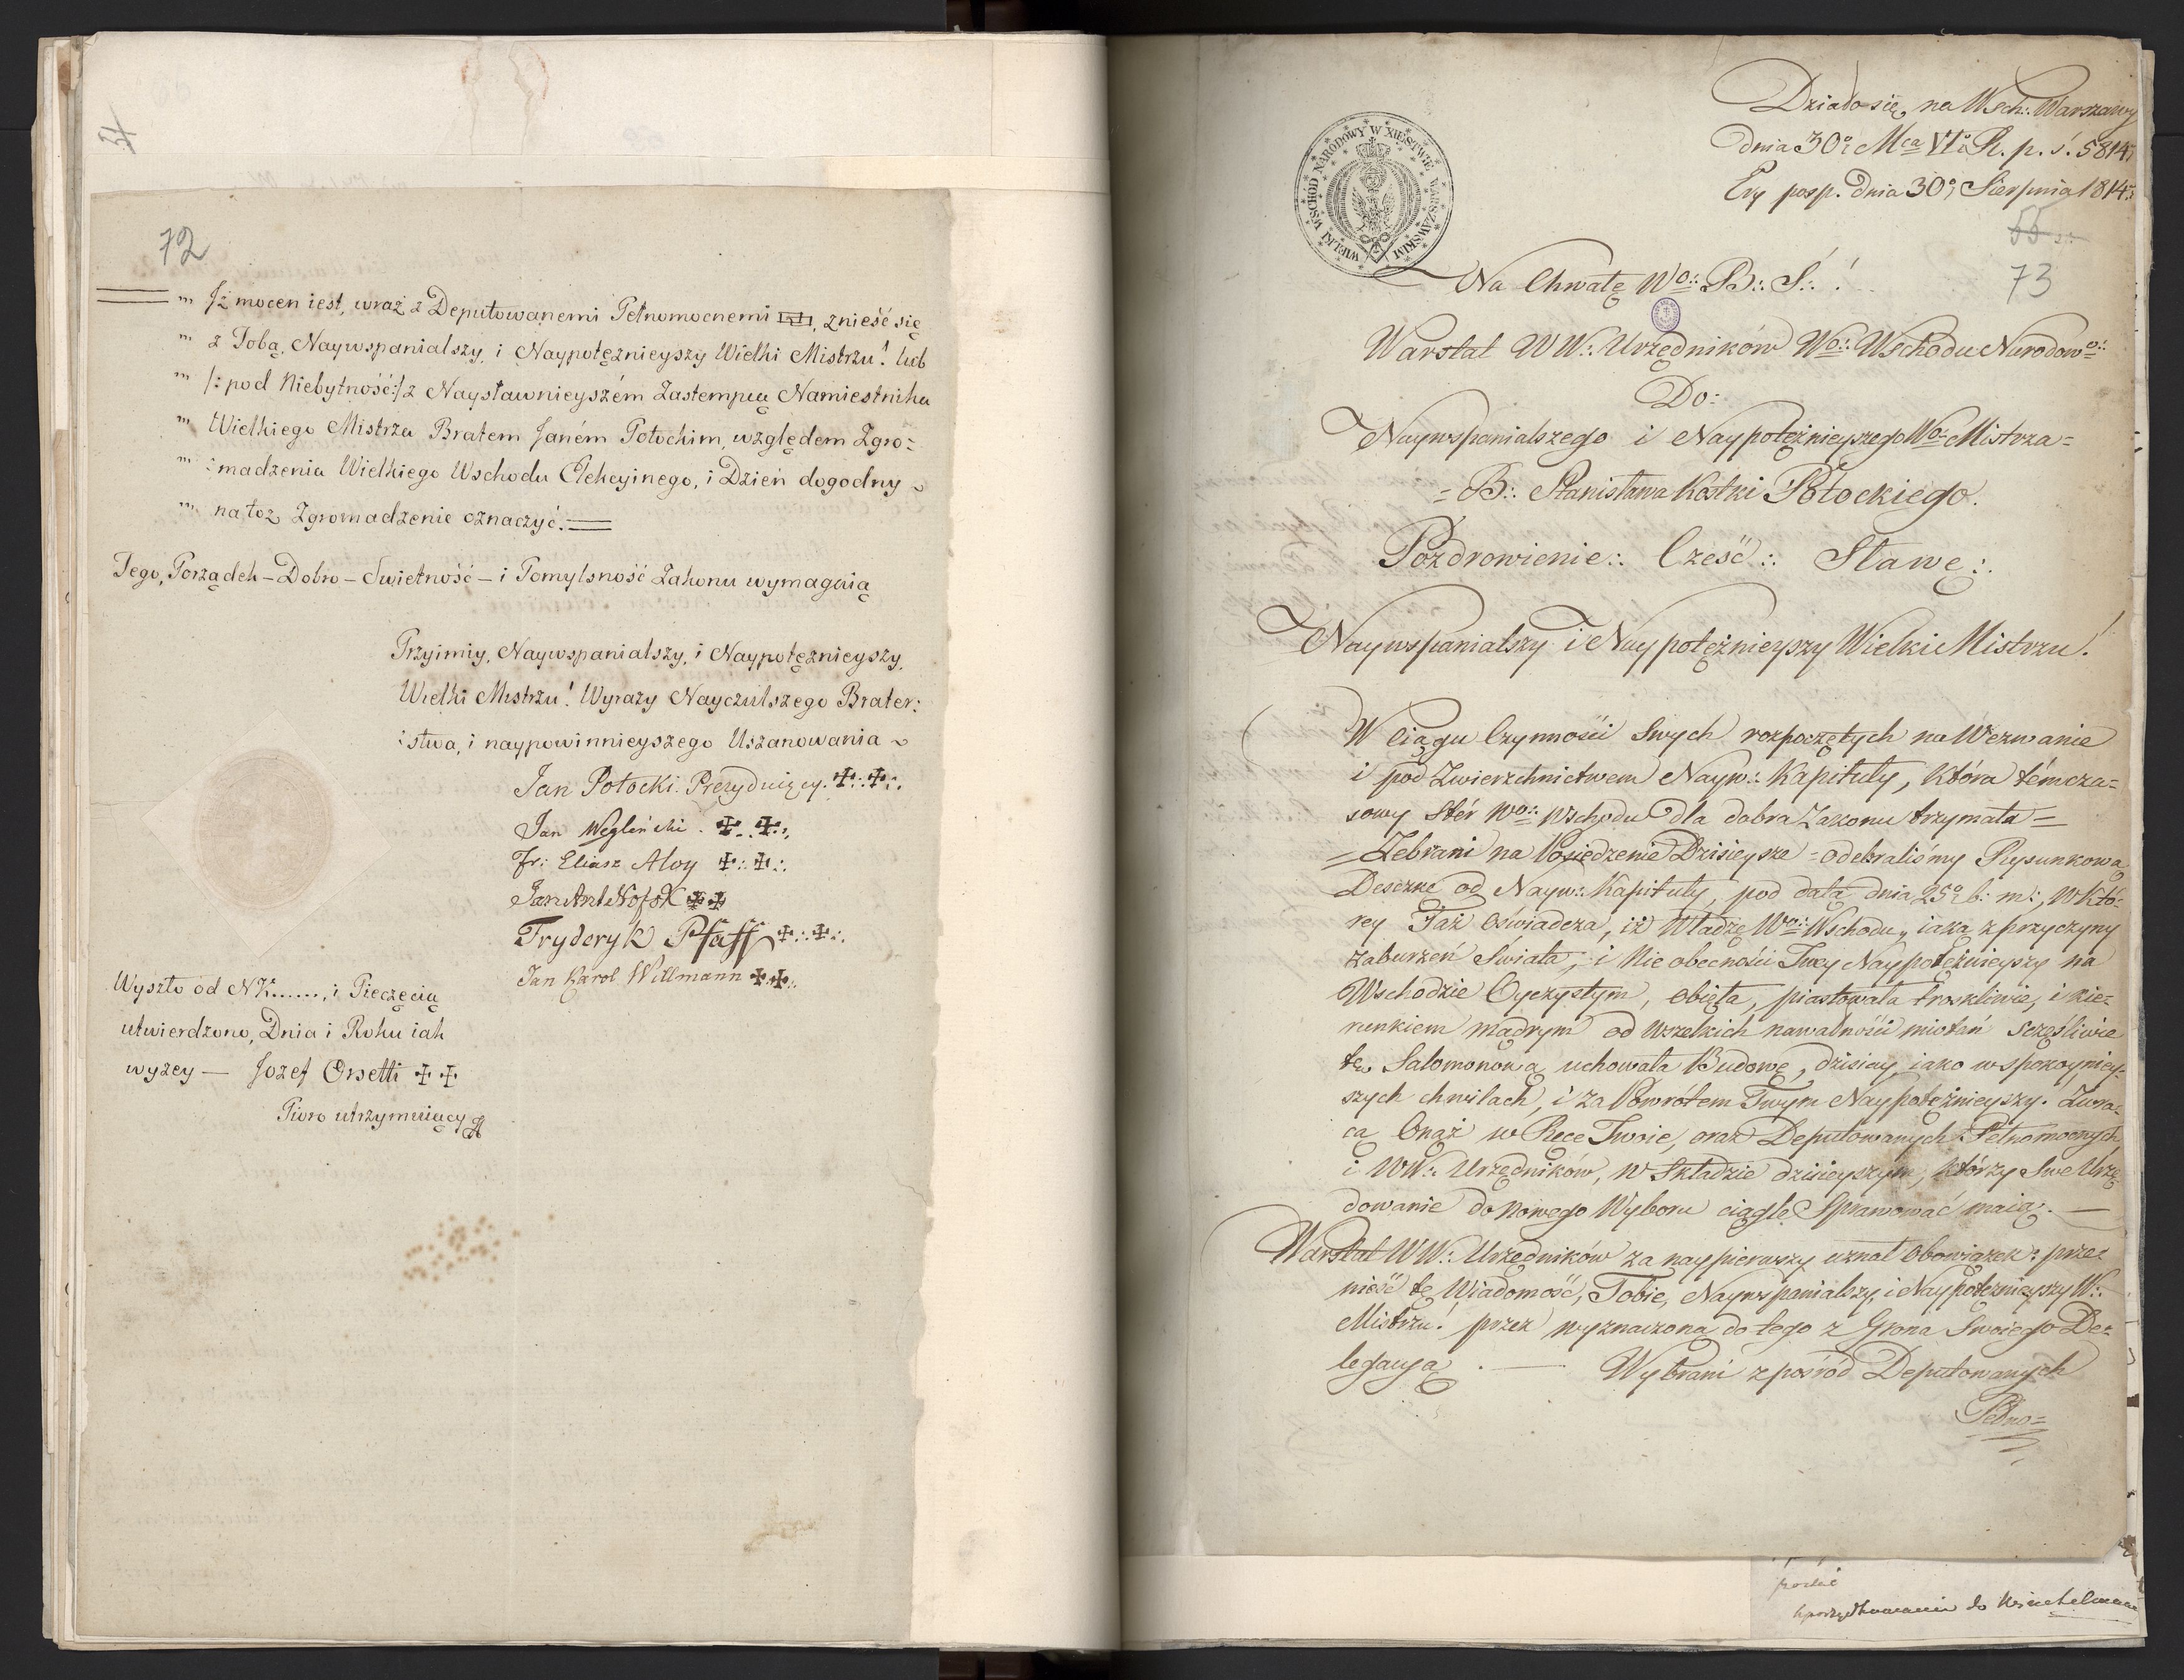 72
„ Iż mocen iest, wraz z Deputowanemi Pełnomocnemi, znieść się
„ z Tobą, Naywspanialszy, i Naypotężnieyszy Wielki Mistrzu! lub
„ /: pod Niebytność :/ z Naysławnieyszém Zastempcą Namiestnika
„ Wielkiego Mistrza Bratem Janém Potockim, względem Zgro=
„ :madzenia Wielkiego Wschodu Elekcyinego, i Dzień dogodny ~
„ na toż Zgromadzenie oznaczyć.=
Tego, Porządek – Dobro – Swietność – i Pomylsność Zakonu wymagaią
Przyimiy, Naywspanialszy, i Naypotężnieyszy,
Wielki Mistrzu! Wyrazy Nayczulszego Brater:
:stwa, i naypowinnieyszego Uszanowania ~
Jan Potocki. Prezyduiący. ✠.:✠.:
Jan Węgleński. ✠.:✠.:
Fr: Eliasz Aloy ✠.:✠.:
Jan Ant Nofok ✠✠
Fryderyk Pfaff ✠.:✠.:
Jan Karol Willmann ✠✠.:
Wyszło od NK......, i Pieczęcią
utwierdzono, Dnia i Roku iak
wyzey — Jozef Orsetti ✠ ✠
Pioro utrzymuiący
Działo się na Wsch.: Warszawy
dnia 30º Mca VIº R. p. ś. 5814.
Ery posp. dnia 30º Sierpnia 1814.
WIELKI WSCHÓD NARODOWY W XIĘSTWIE WARSZAWSKIM
55
73
Na Chwałę Wo.: B.: S.: !
Warstat WW.: Urzędników Wo.: Wschodu Narodowo.:
Do:
Naywspanialszego i Naypotężnieyszego Wo: Mistrza=
= B.: Stanisława Kostki Potockiego.
Pozdrowienie.: Cześć.: Sławę.:
Naywspanialszy i Naypotężnieyszy Wielki Mistrzu!
W ciągu Czynności Swych rozpoczętych na Wezwanie
i pod Zwierzchnictwem Nayw.: Kapituły, która témcza=
sowy Stér Wo.: Wschodu dla dobra Zakonu trzymała=
= Zebrani na Posiedzenie Dzisieysze = odebraliśmy Rysunkową
Desczkę od Nayw.: Kapituły, pod datą dnia 25º b: m:, w Któ=
rey Taż Oświadcza, iż Władzę Wo.: Wschodu, iaką z przyczyny
zaburzeń Świata, i Nieobecności Twey Naypotężnieyszy na
Wschodzie Oyczystym, obięła, piastowała troskliwie, i kie=
runkiem mądrym od wszelkich nawalności miotań scześliwie
tę Salomonową uchowała Budowę, dzisiay, iako w spokoyniey=
szych chwilach, i za Powrótem Twym Naypotężnieyszy. Zwra=
ca Onąż w Ręce Twoie, oraz Deputowanych Pełnomocnych,
i WW.: Urzędników, w Składzie dzisieyszym, którzy Swe Urzę=
dowanie do Nowego Wyboru ciągle Sprawować maią. —
Warstat WW.: Urzędników za naypierwszy uznał obowiązek: prze=
nieść tę Wiadomość, Tobie, Naywspanialszy, i Naypotężnieyszy W.:
Mistrzu! przez wyznaczoną do tego z Grona Swoiego De=
legacyą. — Wybrani z pośród Deputowanych
Pełno=